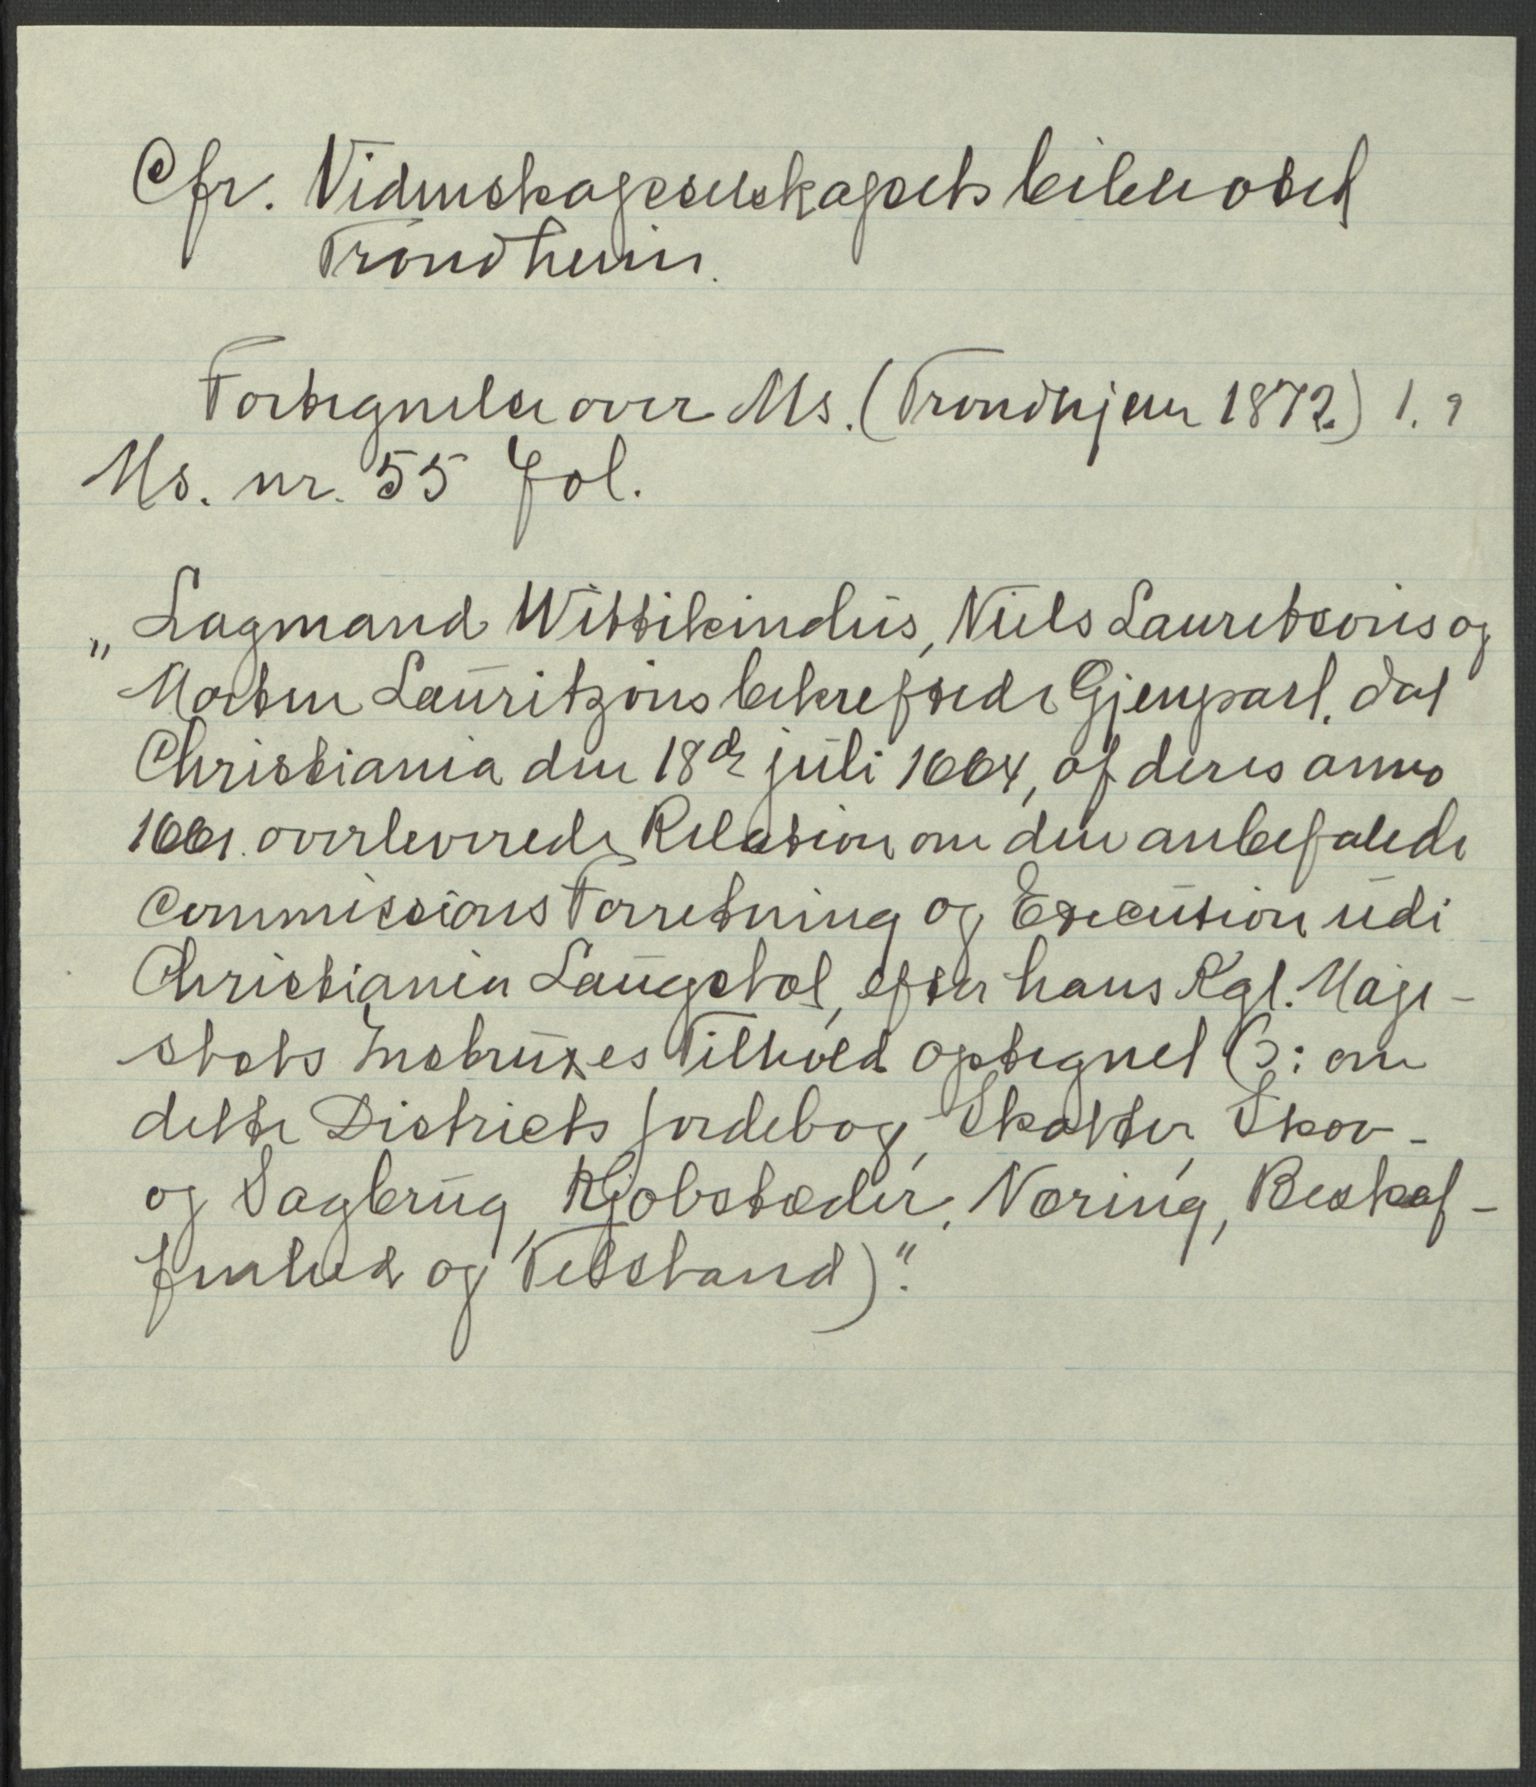 Cfr. Videnskapsselskapets bibliotek
Trondheim.
Fortegnelse over Ms. (Trondhjem 1872.) 1. 9
Ms. nr. 55 fol.
„Lagmand Wittikindüs, Niels Lauretsons og
Morten Laüritzöns bekreftede Gjenpart, dat
Christiania den 18de jüli 1664, af deres anno
1661. overleverede Relation om den anbefalede
Commissions Forretning og Execütion üdi
Christiania Laügstol, efter hans Kgl. Maje-
stets Instrüxes Tilhold optegnet (ɔ: om
dette Districts jordebog, Skatter, Skov-
og Sagbrüg, Kjøbstæder, Næring, Beskaf-
fenhed og Tilstand)“.